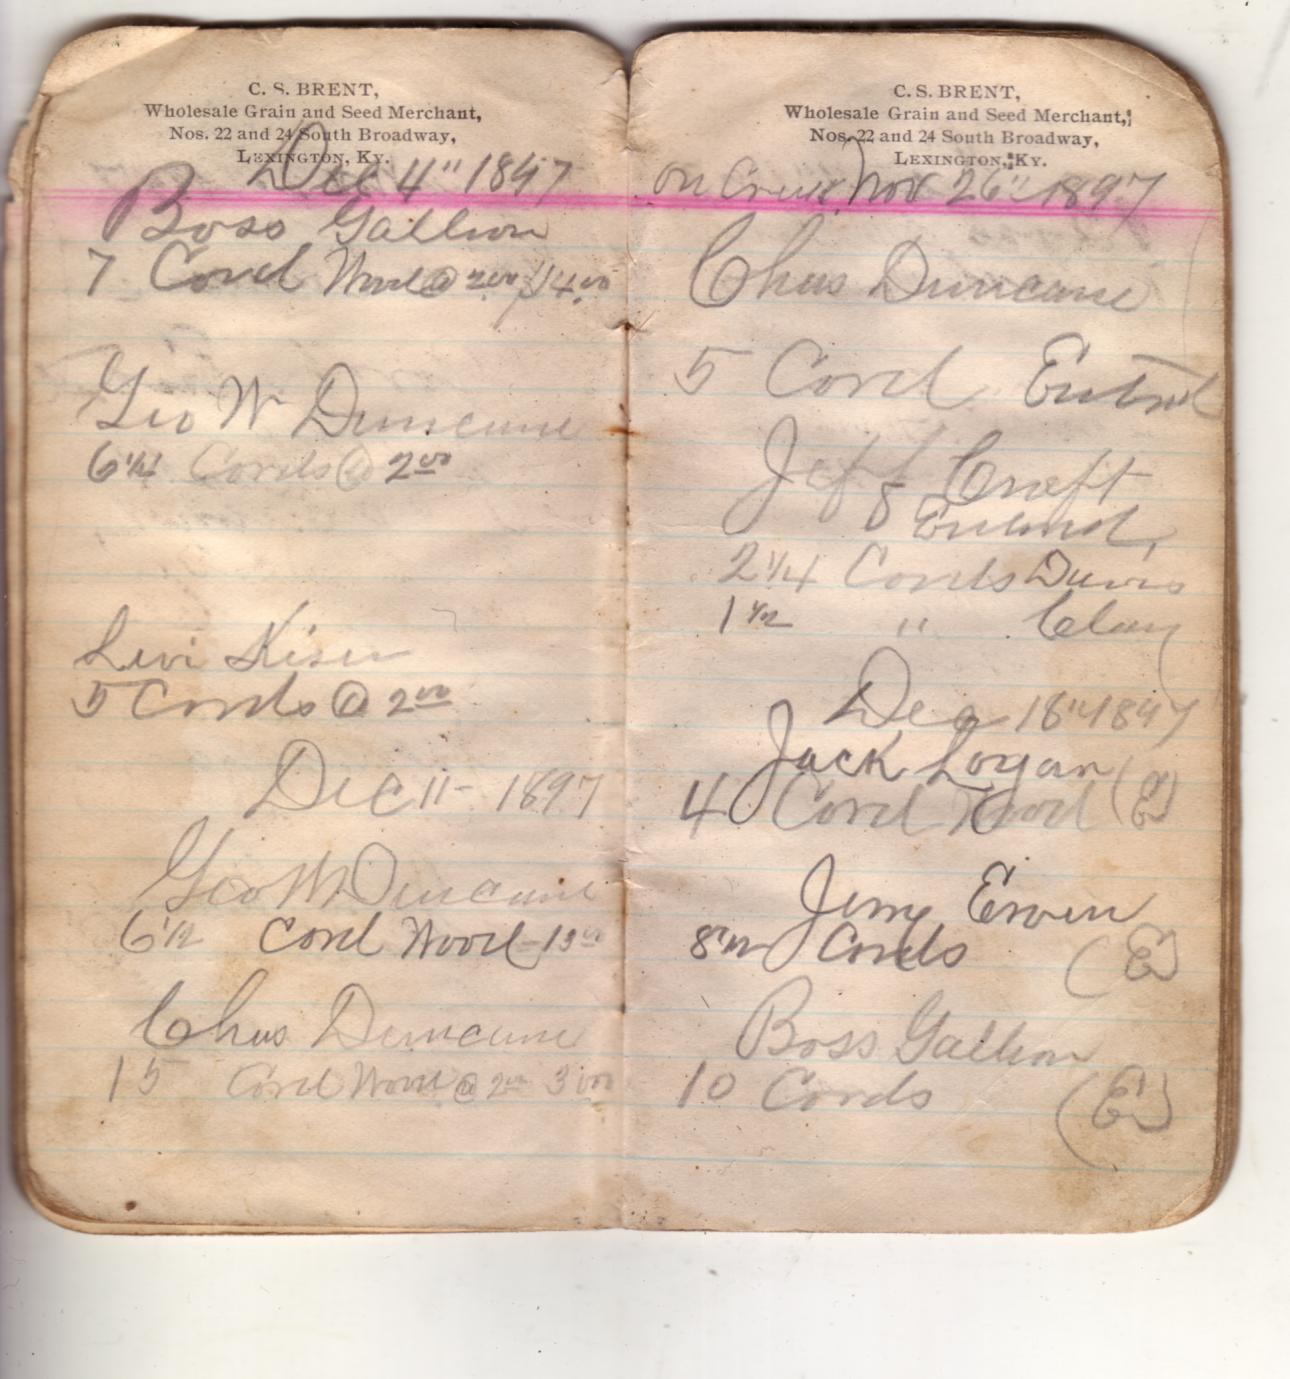 C. S. BRENT,
Wholesale Grain and Seed Merchant,
Nos. 22 and 24 South Broadway,
LEXINGTON, KY.
Dec 4" 1897
Boss Gallion
7 Cord Wood @ 2 00 14.00
Geo W Duncane
6 1/2 Cords @ 2 00
Levi Kiser
5 Cords @ 2 00
Dec 11- 1897
Geo W Duncane
6 1/2 Cord Wood - 13 00
Chas Duncane
15 Cord Wood @ 2 00 3 0 00
C. S. BRENT,
Wholesale Grain and Seed Merchant,
Nos. 22 and 24 South Broadway,
LEXINGTON, KY.
on Creek Nov 26" 1897
Chas Duncane
5 Cord Entred
Jeff Craft
8 Entred,
2 1/4 Cords Davis
1 1/2 " Clay
Dec 18" 1897
Jack Logan
4 Cord Wood (E)
Jerry Erwin
8 1/2 Cords (E)
Boss Gallion
10 Cords (E)